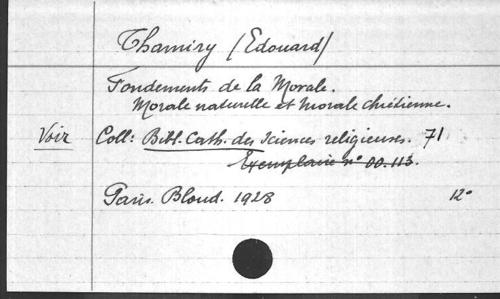 Thamiry (Edouard)
Fondements de la Morale.
Morale naturelle et Morale chrétienne.
Voir Coll: Bibl. Cath. des Sciences religieuses. 71
Exemplaire n° 00.113.
Paris. Bloud. 1928 12°